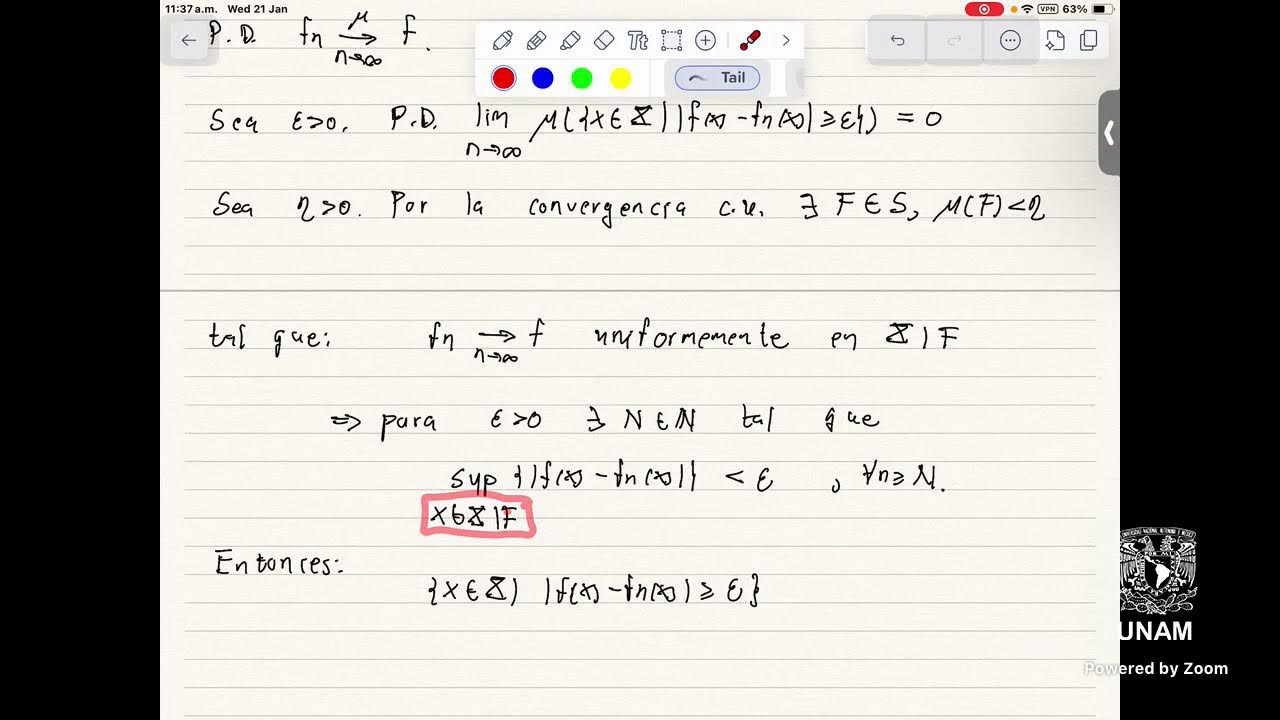 11:37 a.m. Wed 21 Jan
VPN 63%
P.D. fn →μ n→∞ f.
Tt
Tail
Sea ε>0. P.D. lim n→∞ μ({x∈X | |f(x)-fn(x)|≥ε}) = 0
Sea η>0. Por la convergencia c.u. ∃ F∈S, μ(F)<η
tal que: fn → n→∞ f uniformemente en X\F
⇒ para ε>0 ∃ N∈ℕ tal que
sup {|f(x)-fn(x)|} < ε , ∀n≥N.
x∈X\F
Entonces:
{x∈X| |f(x)-fn(x)|≥ε}
UNAM
Powered by Zoom